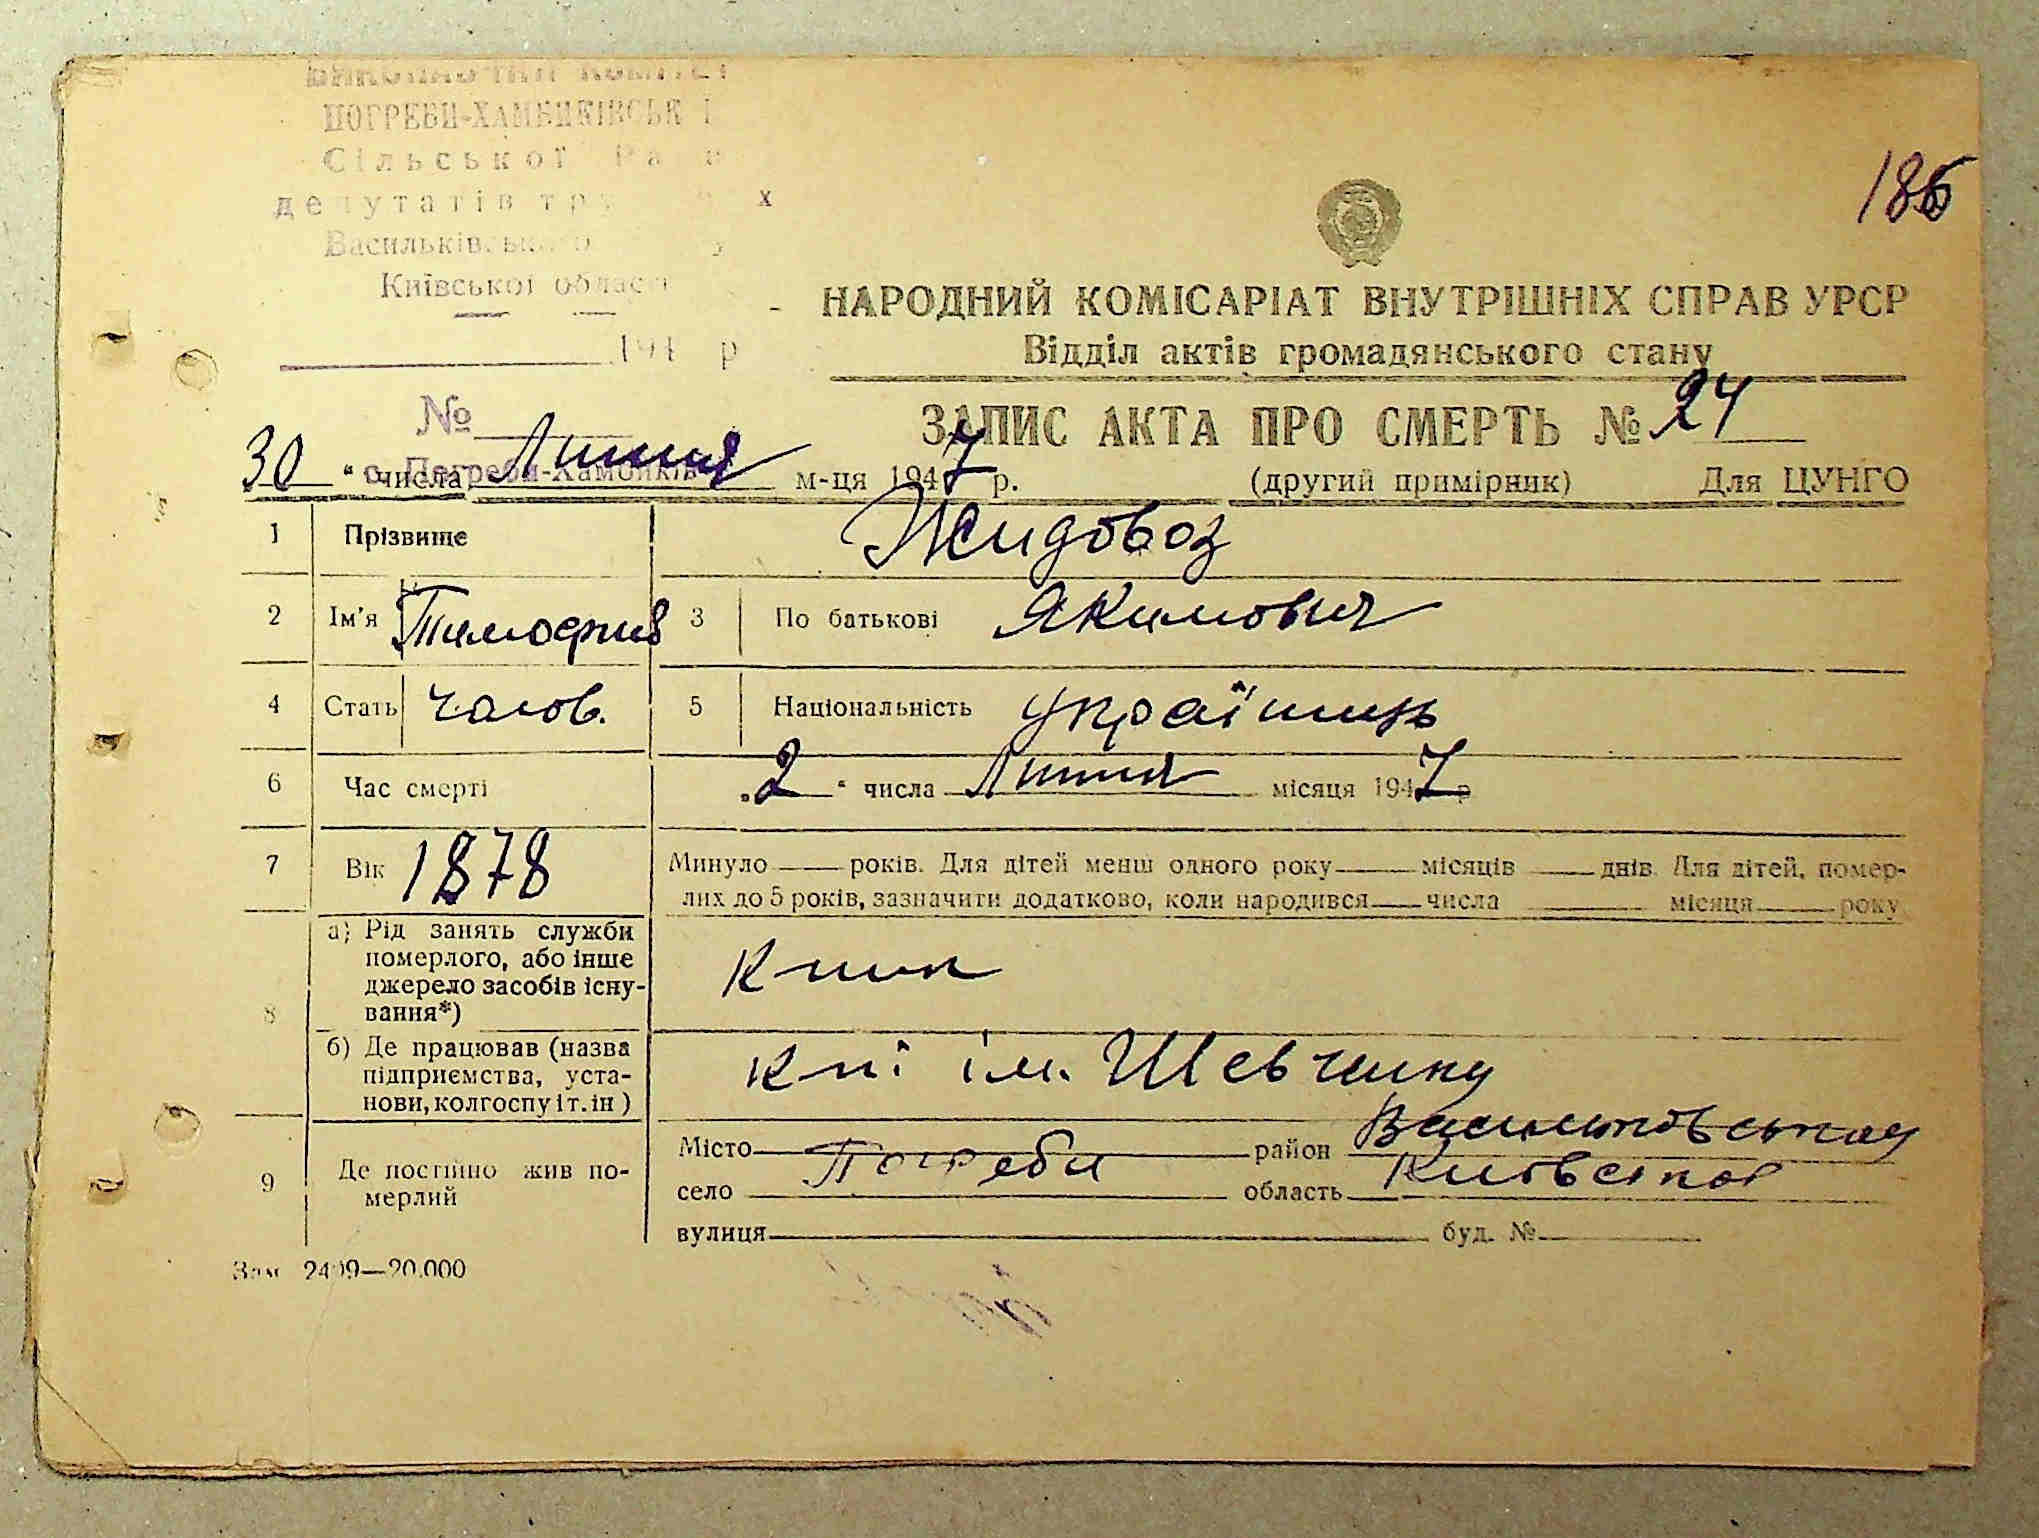 ВИКОНАВЧИЙ КОМІТЕТ
ПОГРЕБИ-ХАМБИКІВСЬК І
Сільської Ра и
депутатів тру х
Васильківського у
Київської област
186
НАРОДНИЙ КОМІСАРІАТ ВНУТРІШНІХ СПРАВ УРСР
Відділ актів громадянського стану
194 р
№
ЗАПИС АКТА ПРО СМЕРТЬ № 24
30 " числа Липня м-ця 1947 р. (другий примірник) Для ЦУНГО
с. Погреби-Хамбиків
1 Прізвище Жидовоз
2 Ім'я Тимофий 3 По батькові Якимович
4 Стать чолов. 5 Національність українць
6 Час смерті „2" числа Липня місяця 1947 р
7 Вік 1878 Минуло — років. Для дітей менш одного року — місяців — днів. Для дітей, помер-
лих до 5 років, зазначити додатково, коли народився — числа — місяця — року
8 а) Рід занять служби
померлого, або інше
джерело засобів існу-
вання*)
б) Де працював (назва
підприємства, уста-
нови, колгоспу і т. ін )
ім. Шевченка
9 Де постійно жив по-
мерлий
Місто Погреби район Васильковський
село область Киівська
вулиця буд. №
Зам 2409—20.000